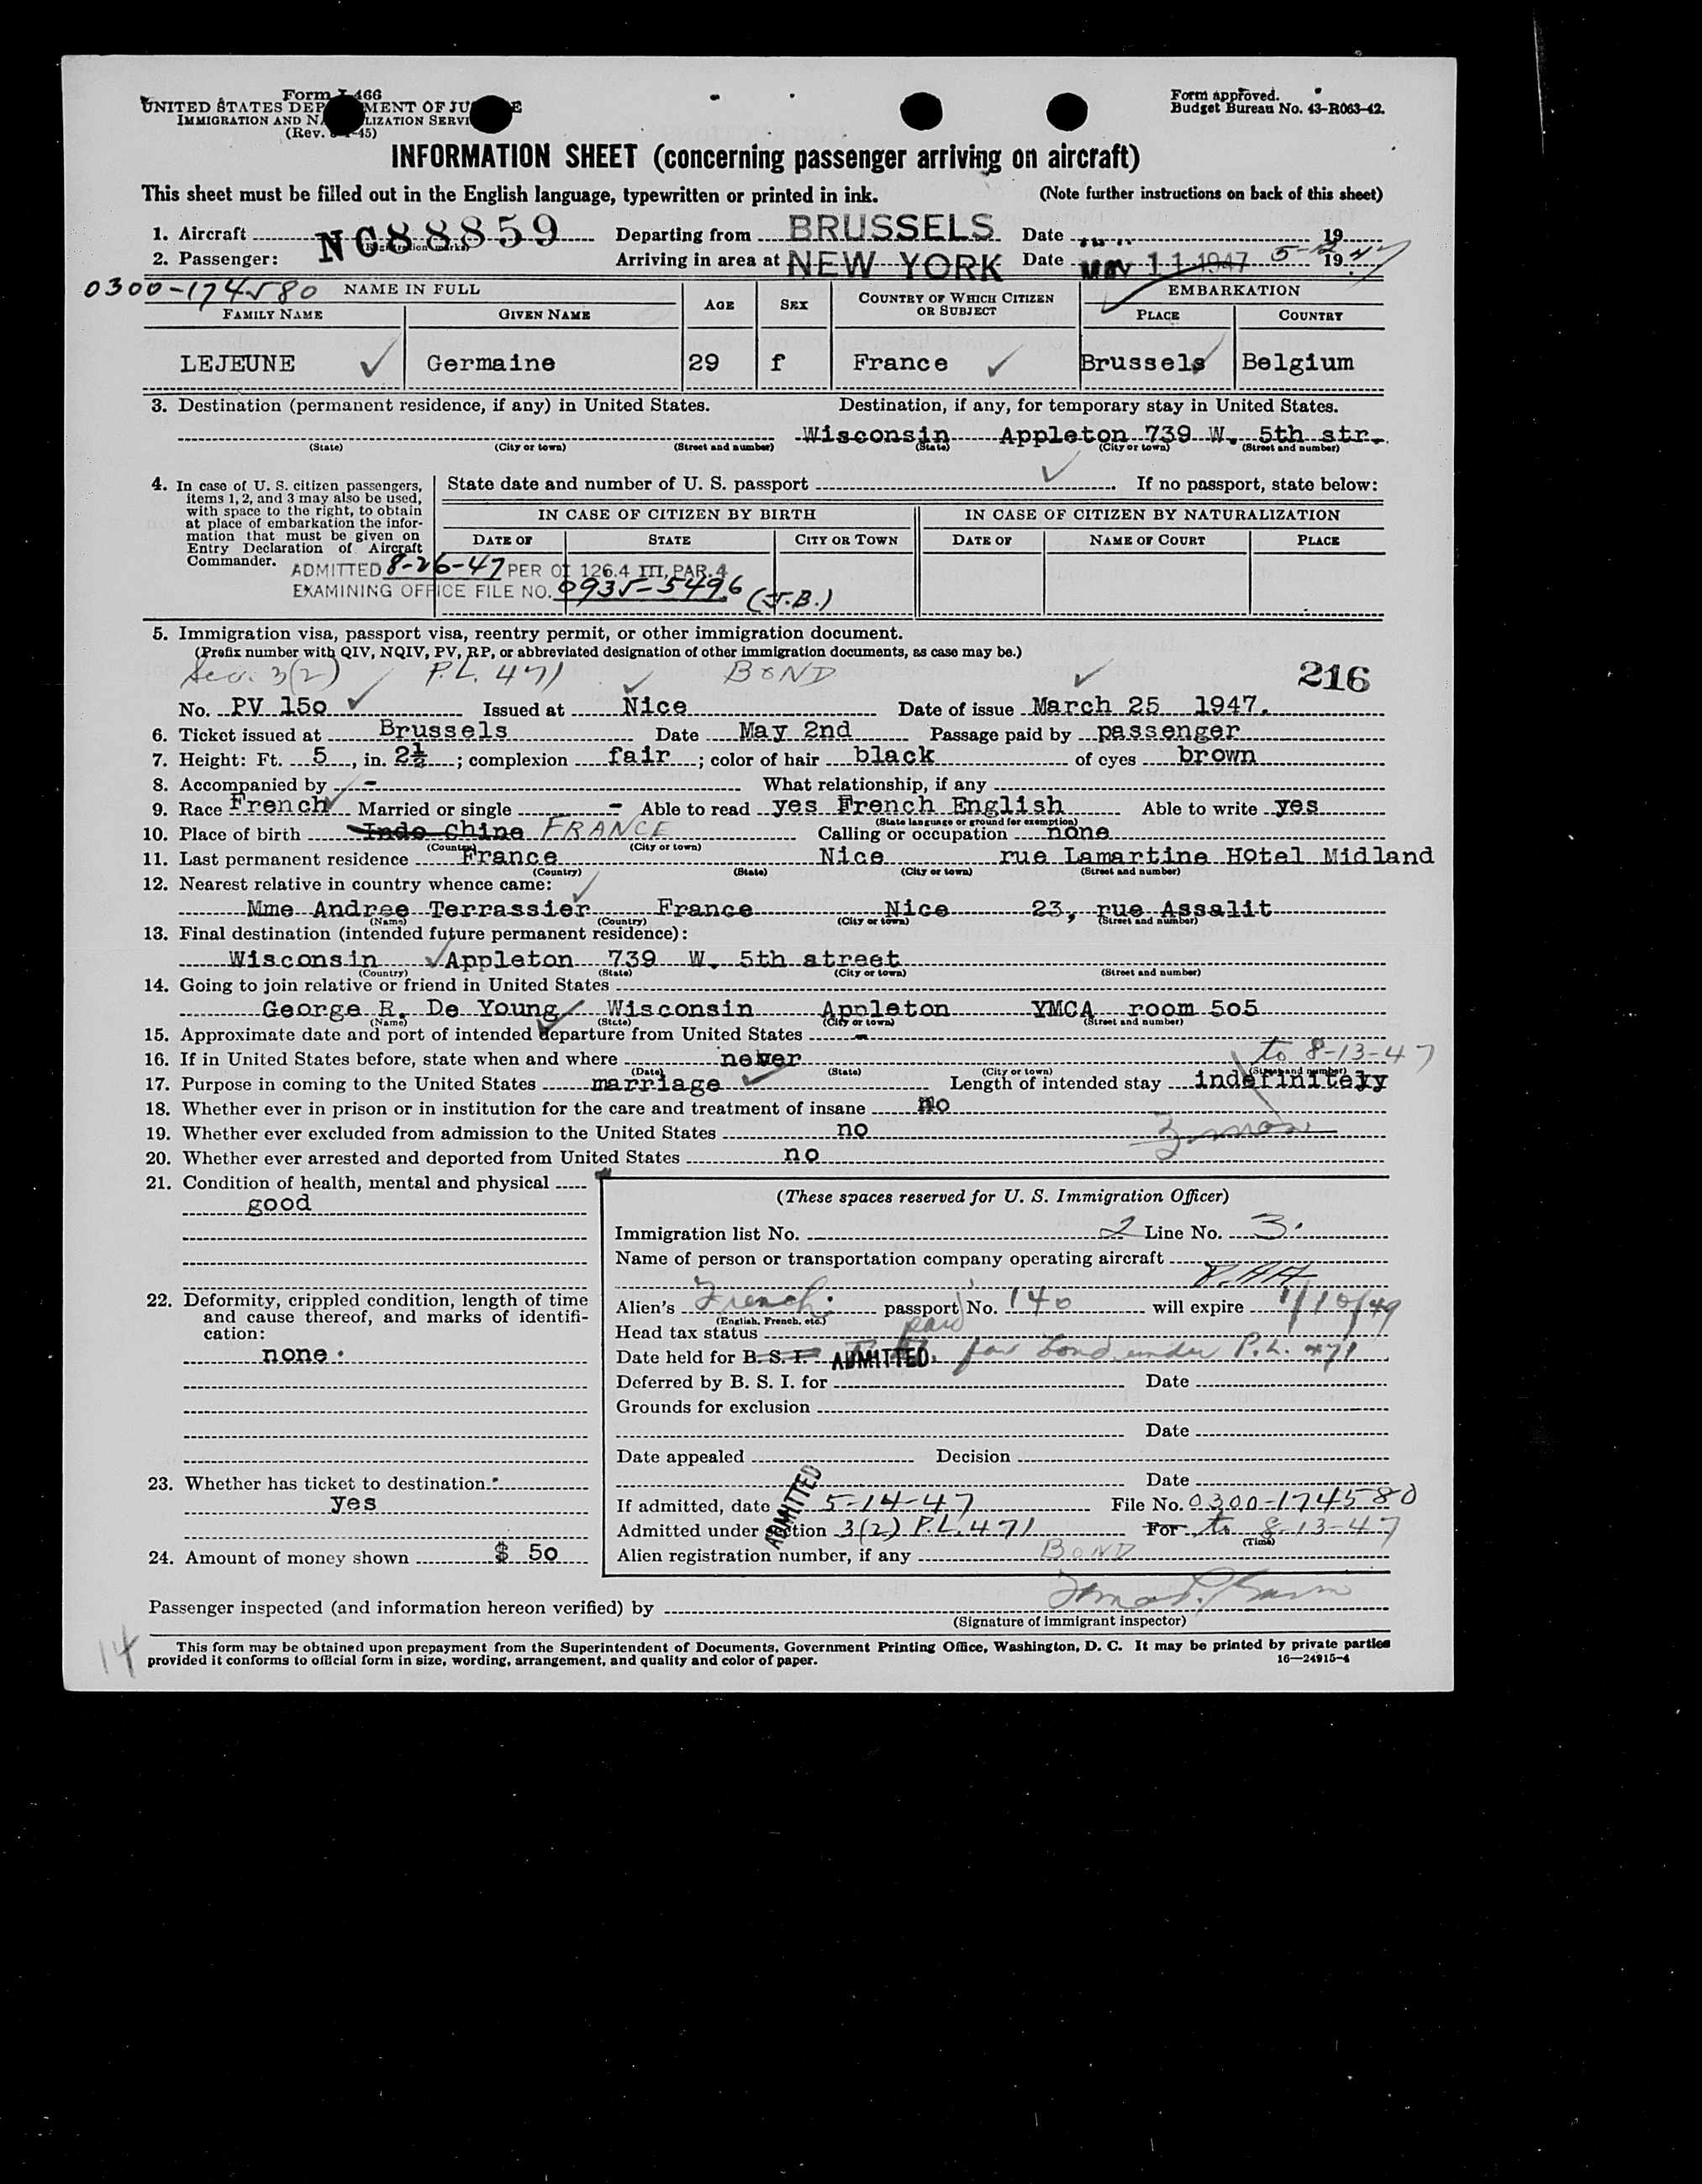 Form I-466
UNITED STATES DEPARTMENT OF JUSTICE
IMMIGRATION AND NATURALIZATION SERVICE
(Rev. -45)
Form approved.
Budget Bureau No. 43-R063-42.
INFORMATION SHEET (concerning passenger arriving on aircraft)
This sheet must be filled out in the English language, typewritten or printed in ink. (Note further instructions on back of this sheet)
1. Aircraft NC88859 (Registration marks) Departing from BRUSSELS Date 19
2. Passenger: Arriving in area at NEW YORK Date MAY 11 1947 5-12 1947
0300-174580 NAME IN FULL AGE SEX COUNTRY OF WHICH CITIZEN OR SUBJECT EMBARKATION
FAMILY NAME GIVEN NAME PLACE COUNTRY
LEJEUNE Germaine 29 f France Brussels Belgium
3. Destination (permanent residence, if any) in United States. Destination, if any, for temporary stay in United States.
Wisconsin Appleton 739 W. 5th str.
(State) (City or town) (Street and number) (State) (City or town) (Street and number)
4. In case of U. S. citizen passengers, items 1, 2, and 3 may also be used, with space to the right, to obtain at place of embarkation the information that must be given on Entry Declaration of Aircraft Commander.
State date and number of U. S. passport . If no passport, state below:
IN CASE OF CITIZEN BY BIRTH IN CASE OF CITIZEN BY NATURALIZATION
DATE OF STATE CITY OR TOWN DATE OF NAME OF COURT PLACE
ADMITTED 8-26-47 PER OI 126.4 III, PAR. 4
EXAMINING OFFICE FILE NO. 0935-5496 (J.B.)
5. Immigration visa, passport visa, reentry permit, or other immigration document.
(Prefix number with QIV, NQIV, PV, RP, or abbreviated designation of other immigration documents, as case may be.)
Sec. 3(2) P.L. 471 BOND 216
No. PV 150 Issued at Nice Date of issue March 25 1947.
6. Ticket issued at Brussels Date May 2nd Passage paid by passenger
7. Height: Ft. 5, in. 2½; complexion fair; color of hair black of eyes brown
8. Accompanied by - What relationship, if any
9. Race French Married or single - Able to read yes French English Able to write yes
(State language or ground for exemption)
10. Place of birth Indo Chine FRANCE Calling or occupation none
(Country) (City or town)
11. Last permanent residence France Nice rue Lamartine Hotel Midland
(Country) (State) (City or town) (Street and number)
12. Nearest relative in country whence came:
Mme Andree Terrassier France Nice 23, rue Assalit
(Name) (Country) (City or town) (Street and number)
13. Final destination (intended future permanent residence):
Wisconsin Appleton 739 W. 5th street
(Country) (State) (City or town) (Street and number)
14. Going to join relative or friend in United States
George R. De Young Wisconsin Appleton YMCA room 505
(Name) (State) (City or town) (Street and number)
15. Approximate date and port of intended departure from United States -
16. If in United States before, state when and where never to 8-13-47
(Date) (State) (City or town) (Street and number)
17. Purpose in coming to the United States marriage Length of intended stay indefinitely
18. Whether ever in prison or in institution for the care and treatment of insane no
19. Whether ever excluded from admission to the United States no 3 mos
20. Whether ever arrested and deported from United States no
21. Condition of health, mental and physical
good
22. Deformity, crippled condition, length of time and cause thereof, and marks of identification:
none.
23. Whether has ticket to destination.
yes
24. Amount of money shown $ 50
(These spaces reserved for U. S. Immigration Officer)
Immigration list No. 2 Line No. 3.
Name of person or transportation company operating aircraft
P.A.A.
Alien's French passport No. 140 will expire 1/10/49
(English, French, etc.)
Head tax status paid
Date held for B. S. I. ADMITTED. for bond under P.L. 471
Deferred by B. S. I. for Date
Grounds for exclusion
Date
Date appealed Decision
Date
If admitted, date 5-14-47 File No. 0300-174580
ADMITTED
Admitted under section 3(2) P.L. 471 For to 8-13-47
(Time)
Alien registration number, if any BOND
Passenger inspected (and information hereon verified) by
(Signature of immigrant inspector)
14
This form may be obtained upon prepayment from the Superintendent of Documents, Government Printing Office, Washington, D. C. It may be printed by private parties
provided it conforms to official form in size, wording, arrangement, and quality and color of paper. 16—24915-4